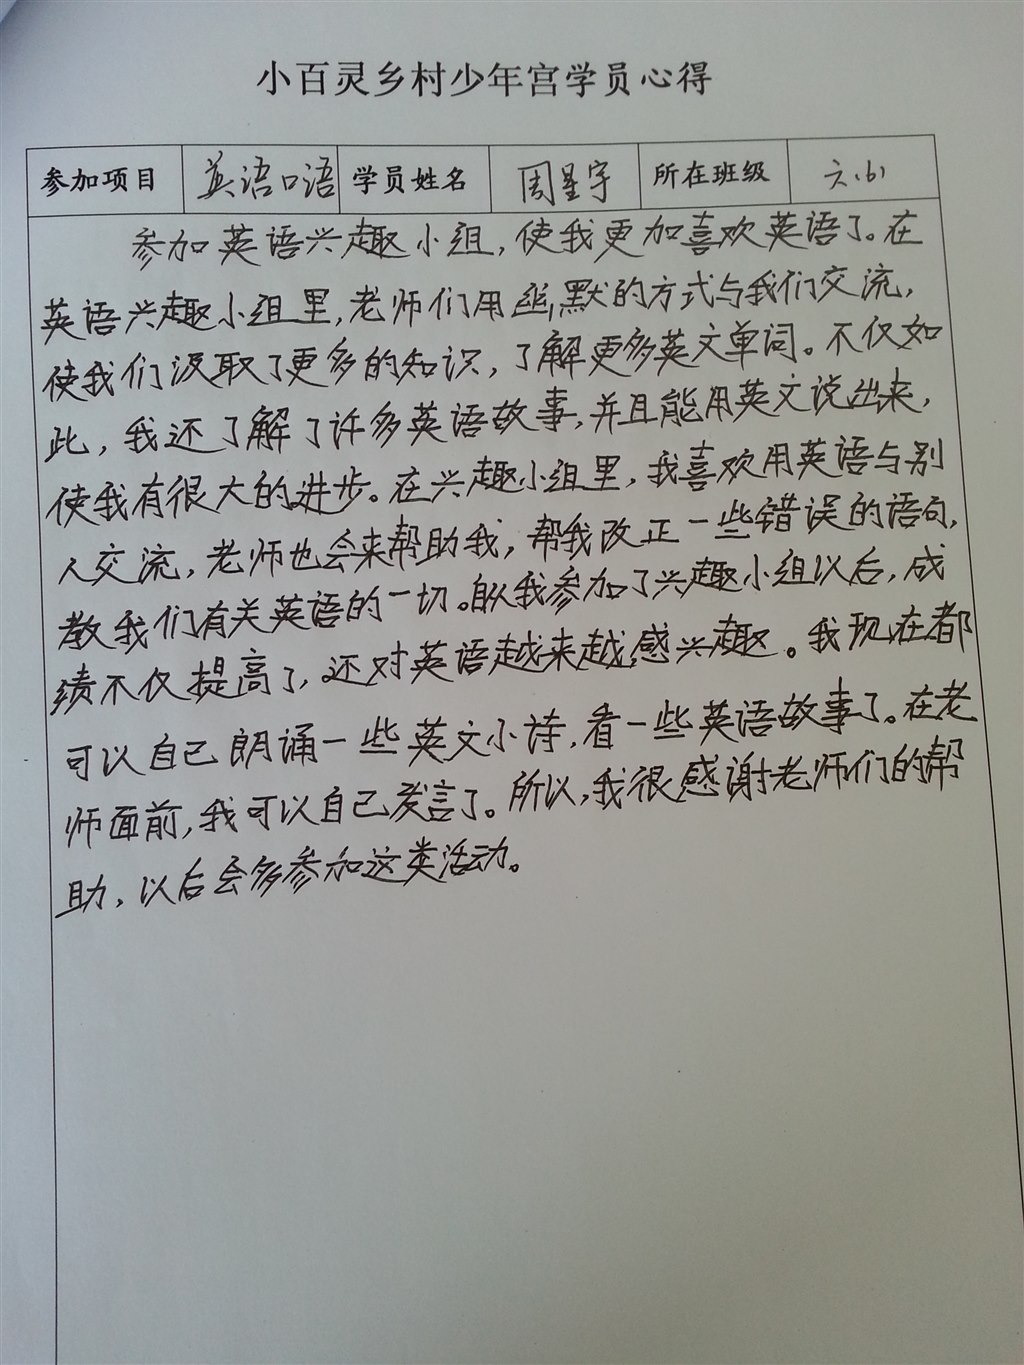 小百灵乡村少年宫学员心得
参加项目 英语口语 学员姓名 周星宇 所在班级
参加英语兴趣小组，使我更加喜欢英语了。在
英语兴趣小组里，老师们用幽默的方式与我们交流，
使我们汲取了更多的知识，了解更多英文单词。不仅如
此，我还了解了许多英语故事，并且能用英文说出来，
使我有很大的进步。在兴趣小组里，我喜欢用英语与别
人交流，老师也会来帮助我，帮我改正一些错误的语句，
教我们有关英语的一切。自从我参加了兴趣小组以后，成
绩不仅提高了，还对英语越来越感兴趣。我现在都
可以自己朗诵一些英文小诗，看一些英语故事了。在老
师面前，我可以自己发言了。所以，我很感谢老师们的帮
助，以后会多参加这类活动。